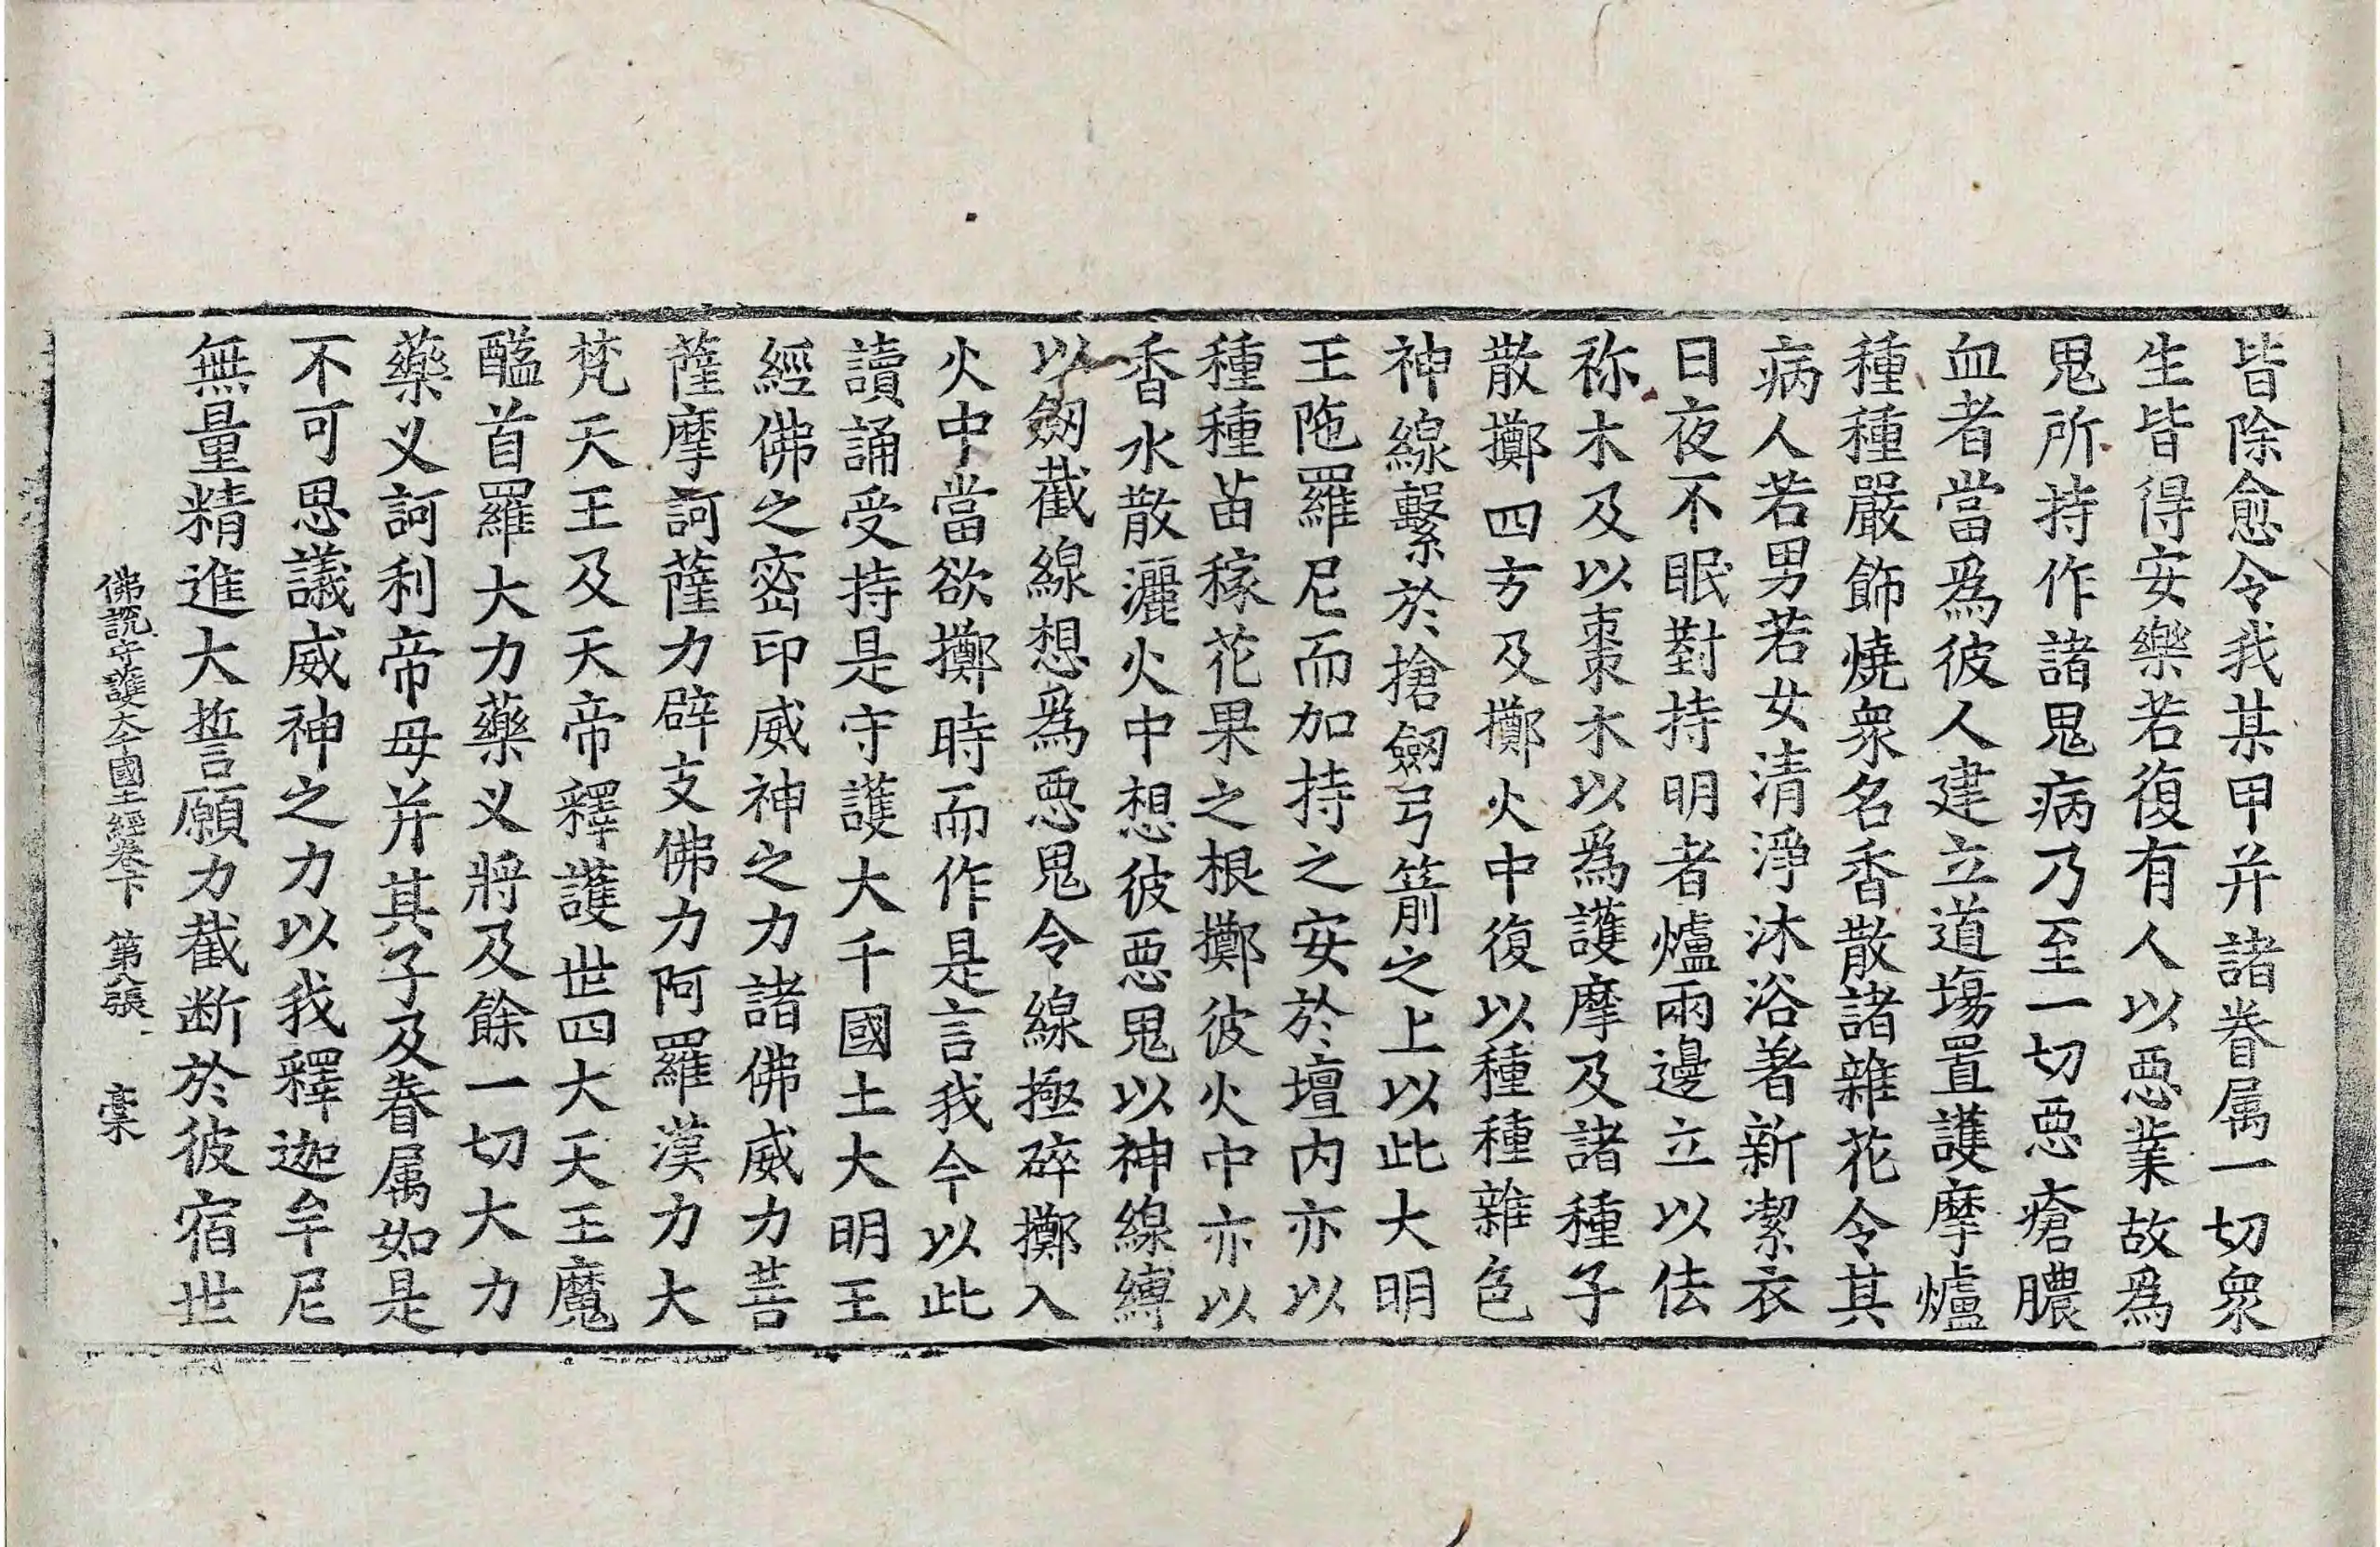 皆除愈令我某甲并諸眷属一切衆
生皆得安樂若復有人以惡業故爲
鬼所持作諸鬼病乃至一切惡瘡膿
血者當爲彼人建立道塲置護摩爐
種種嚴飾燒衆名香散諸雜花令其
病人若男若女清淨沐浴著新潔衣
日夜不眠對持明者爐兩邊立以佉
祢木及以棗木以爲護摩及諸種子
散擲四方及擲火中復以種種雜色
神線繫於搶劒弓箭之上以此大明
王陁羅尼而加持之安於壇内亦以
種種苗稼花果之根擲彼火中亦以
香水散灑火中想彼惡鬼以神線縛
以劒截線想爲惡鬼令線極碎擲入
火中當欲擲時而作是言我今以此
讀誦受持是守護大千國土大明王
經佛之密印威神之力諸佛威力菩
薩摩訶薩力辟支佛力阿羅漢力大
梵天王及天帝釋護世四大天王魔
醯首羅大力藥叉將及餘一切大力
藥叉訶利帝母并其子及眷属如是
不可思議威神之力以我釋迦牟尼
無量精進大誓願力截断於彼宿世
佛說守護大千國土經卷下 第八張 槀